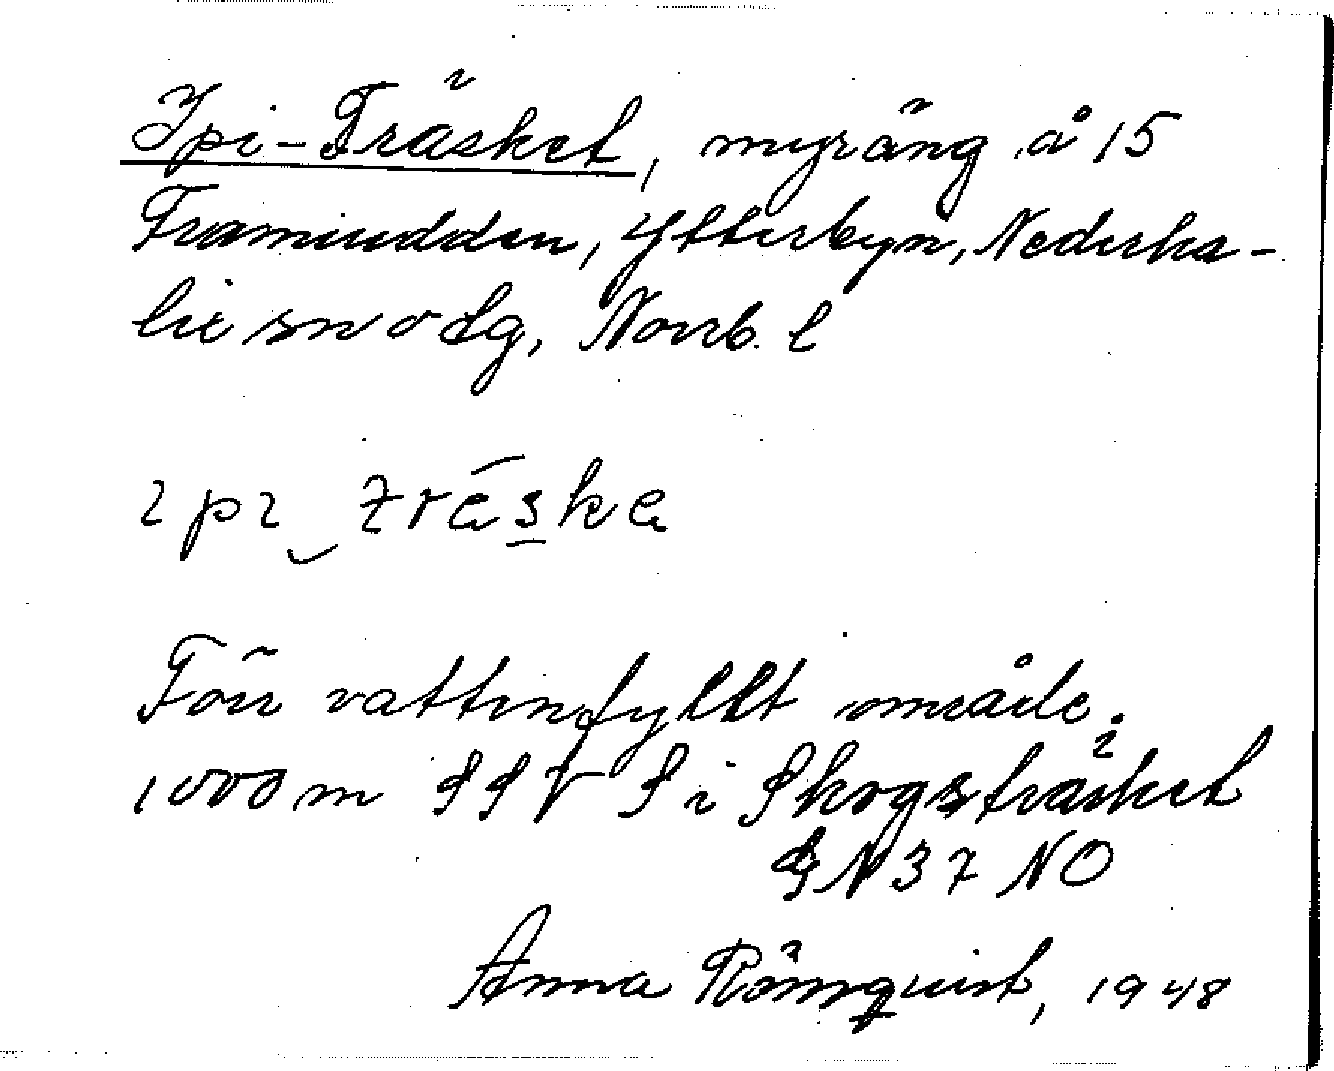 Ipi-Träsket, myräng å 15
Framiudden, Ytterbyn, Nederka-
lix sn o dg, Norrb. l
ɩpɩ‿träska
Förr vattenfyllt område.
1000 m SSV S i Skogsträsket
GN 37 NO
Anna Römquist, 1948